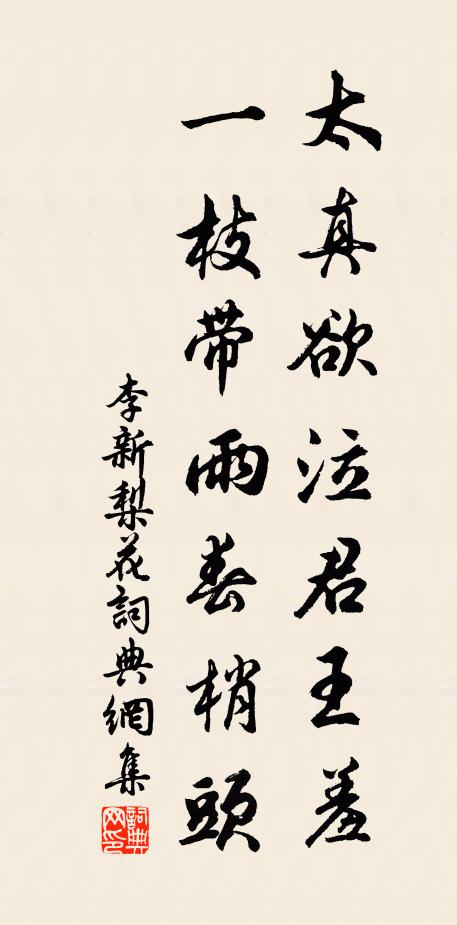 太真欲泣君王羞
一枝帶雨春梢頭
李新梨花詞典網集
詞典網印